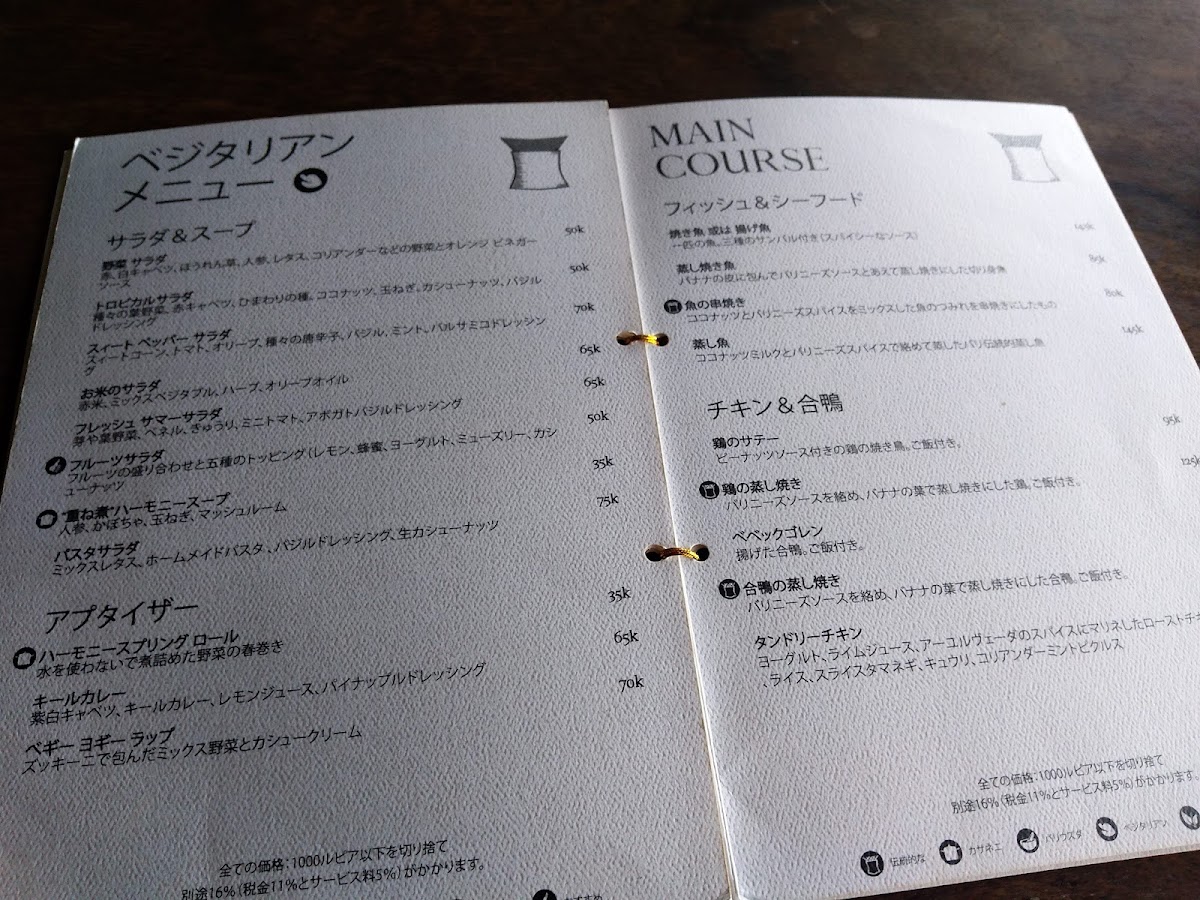 ベジタリアン
メニュー
サラダ＆スープ
野菜 サラダ 50k
赤、白キャベツ、ほうれん草、人参、レタス、コリアンダーなどの野菜とオレンジ ビネガー
ソース
トロピカルサラダ 50k
種々の葉野菜、赤キャベツ、ひまわりの種。ココナッツ、玉ねぎ、カシューナッツ、バジル
ドレッシング
スィート ペッパー サラダ 70k
スィートコーン、トマト、オリーブ、種々の唐辛子、バジル、ミント、バルサミコドレッシン
グ
お米のサラダ 65k
赤米、ミックスベジタブル、ハーブ、オリーブオイル
フレッシュ サマーサラダ 65k
芽や葉野菜、ベネル、きゅうり、ミニトマト、アボガトバジルドレッシング
フルーツサラダ 50k
フルーツの盛り合わせと五種のトッピング（レモン、蜂蜜、ヨーグルト、ミューズリー、カシ
ューナッツ
"重ね煮"ハーモニースープ 35k
人参、かぼちゃ、玉ねぎ、マッシュルーム
パスタサラダ 75k
ミックスレタス、ホームメイドパスタ、バジルドレッシング、生カシューナッツ
アプタイザー
ハーモニースプリング ロール 35k
水を使わないで煮詰めた野菜の春巻き
キールカレー 65k
紫白キャベツ、キールカレー、レモンジュース、パイナップルドレッシング
ベギー ヨギー ラップ 70k
ズッキーニで包んだミックス野菜とカシュークリーム
全ての価格：1000ルピア以下を切り捨て
別途16%（税金11%とサービス料5%）がかかります。
おすすめ
MAIN
COURSE
フィッシュ＆シーフード
焼き魚 或は 揚げ魚
一匹の魚。三種のサンバル付き（スパイシーなソース）
蒸し焼き魚 85k
バナナの皮に包んでバリニーズソースとあえて蒸し焼きにした切り身魚
魚の串焼き 80k
ココナッツとバリニーズスパイスをミックスした魚のつみれを串焼きにしたもの
蒸し魚 145k
ココナッツミルクとバリニーズスパイスで絡めて蒸したバリ伝統的蒸し魚
チキン＆合鴨
鶏のサテー 95k
ピーナッツソース付きの鶏の焼き鳥。ご飯付き。
鶏の蒸し焼き 125k
バリニーズソースを絡め、バナナの葉で蒸し焼きにした鶏。ご飯付き。
ベベックゴレン
揚げた合鴨。ご飯付き。
合鴨の蒸し焼き
バリニーズソースを絡め、バナナの葉で蒸し焼きにした合鴨。ご飯付き。
タンドリーチキン
ヨーグルト、ライムジュース、アーユルヴェーダのスパイスにマリネしたローストチキ
、ライス、スライスタマネギ、キュウリ、コリアンダーミントピクルス
全ての価格：1000ルピア以下を切り捨て
別途16%（税金11%とサービス料5%）がかかります。
伝統的な カサネエ バリウスタ ベジタリアン